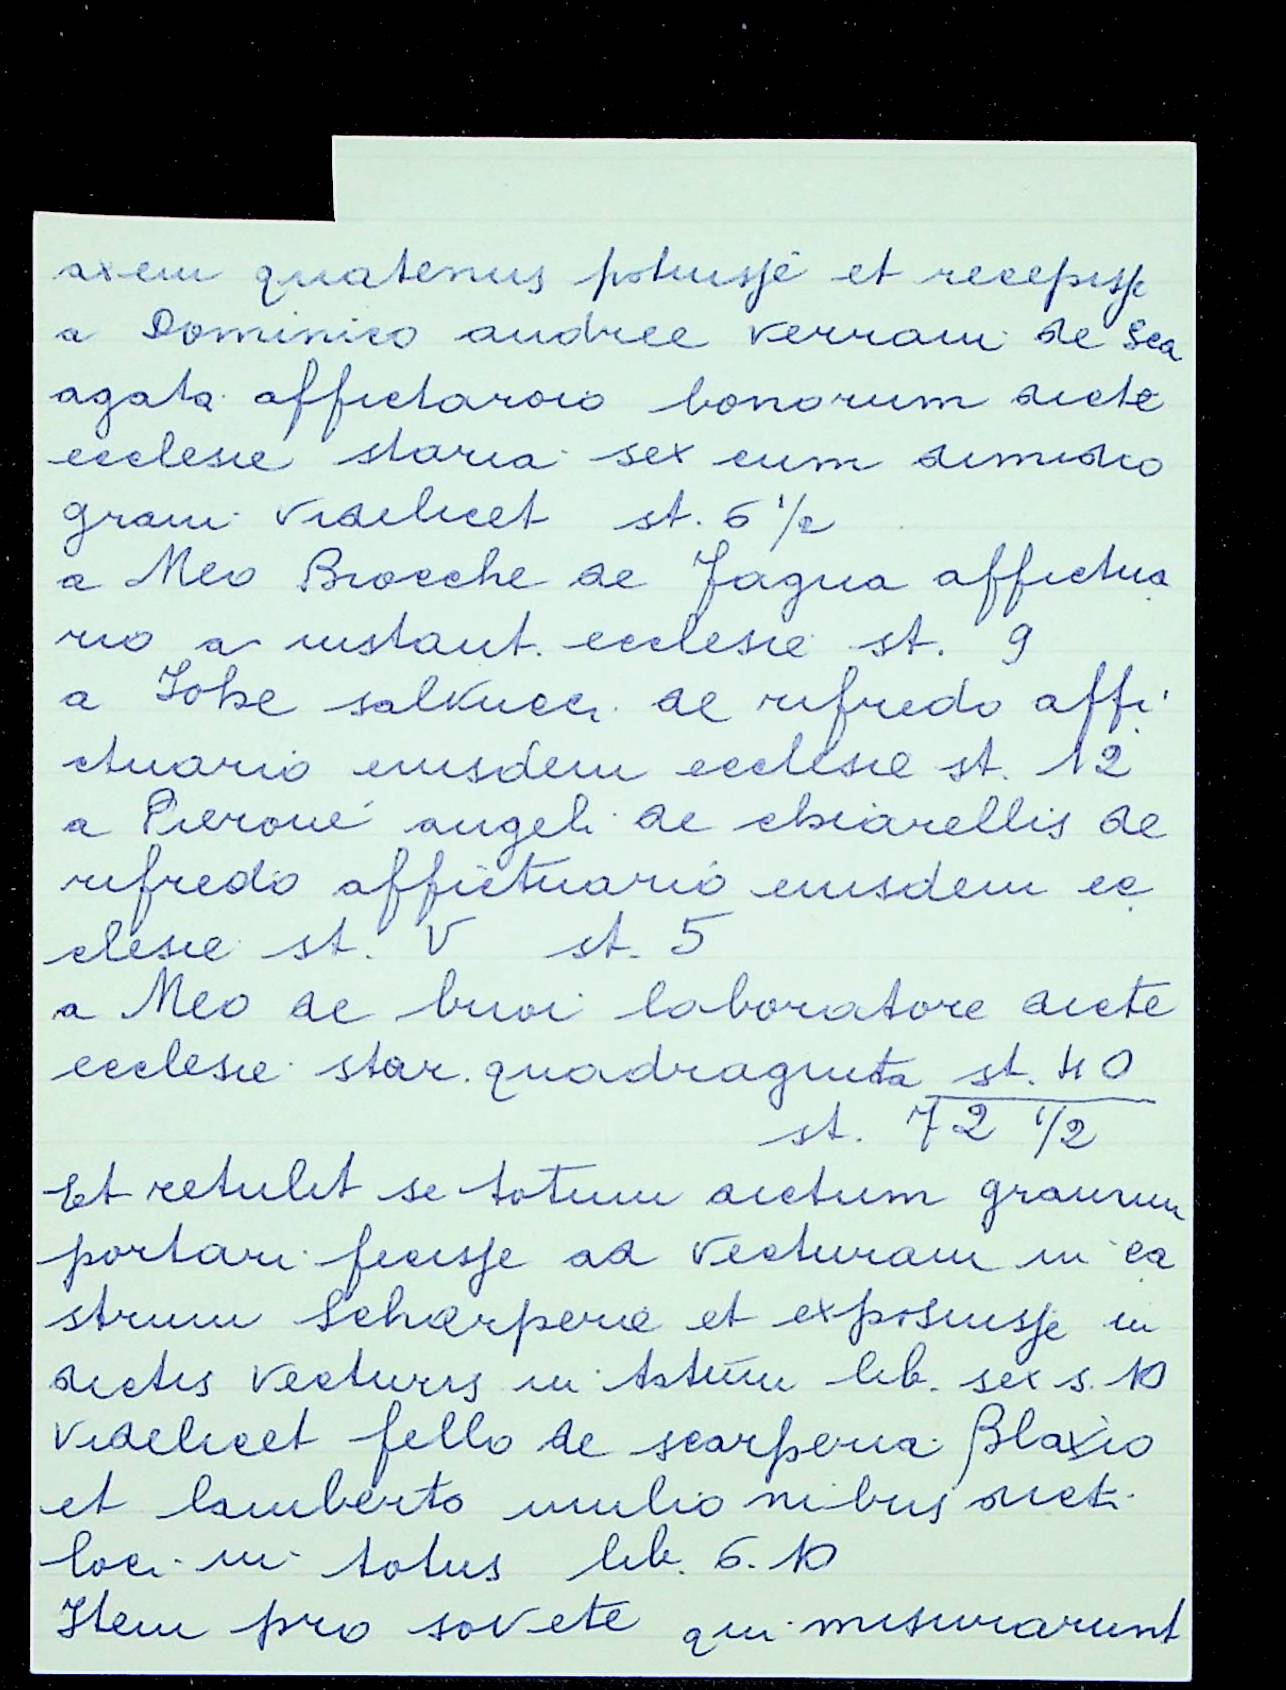 axem quatenus potuisse et recepisse
a Dominico andree verrani de Sca
agata affictaroio bonorum dicte
ecclesie staria sex cum dimidio
grani videlicet st. 6 1/2
a Meo Brocche de Fagna affictua
rio a instant. ecclesie st. 9
a Johe salvucci de rifredo affi
ctuario eiusdem ecclesie st. 12
a Pierone angeli de chiarellis de
rifredo affictuario eiusdem ec
clesie st. V st. 5
a Meo de buoi laboratore dicte
ecclesie star. quadraginta st. 40
st. 72 1/2
Et retulit se totum dictum granum
portari fecisse ad vecturam in ca
strum Scharperie et exposuisse in
dictis vecturis in totum lib. sex s. 10
videlicet fello de scarperia Blaxio
et lamberto mulionibus dicti
loci in totus lib. 6. 10
Item pro sovete qui misurarunt